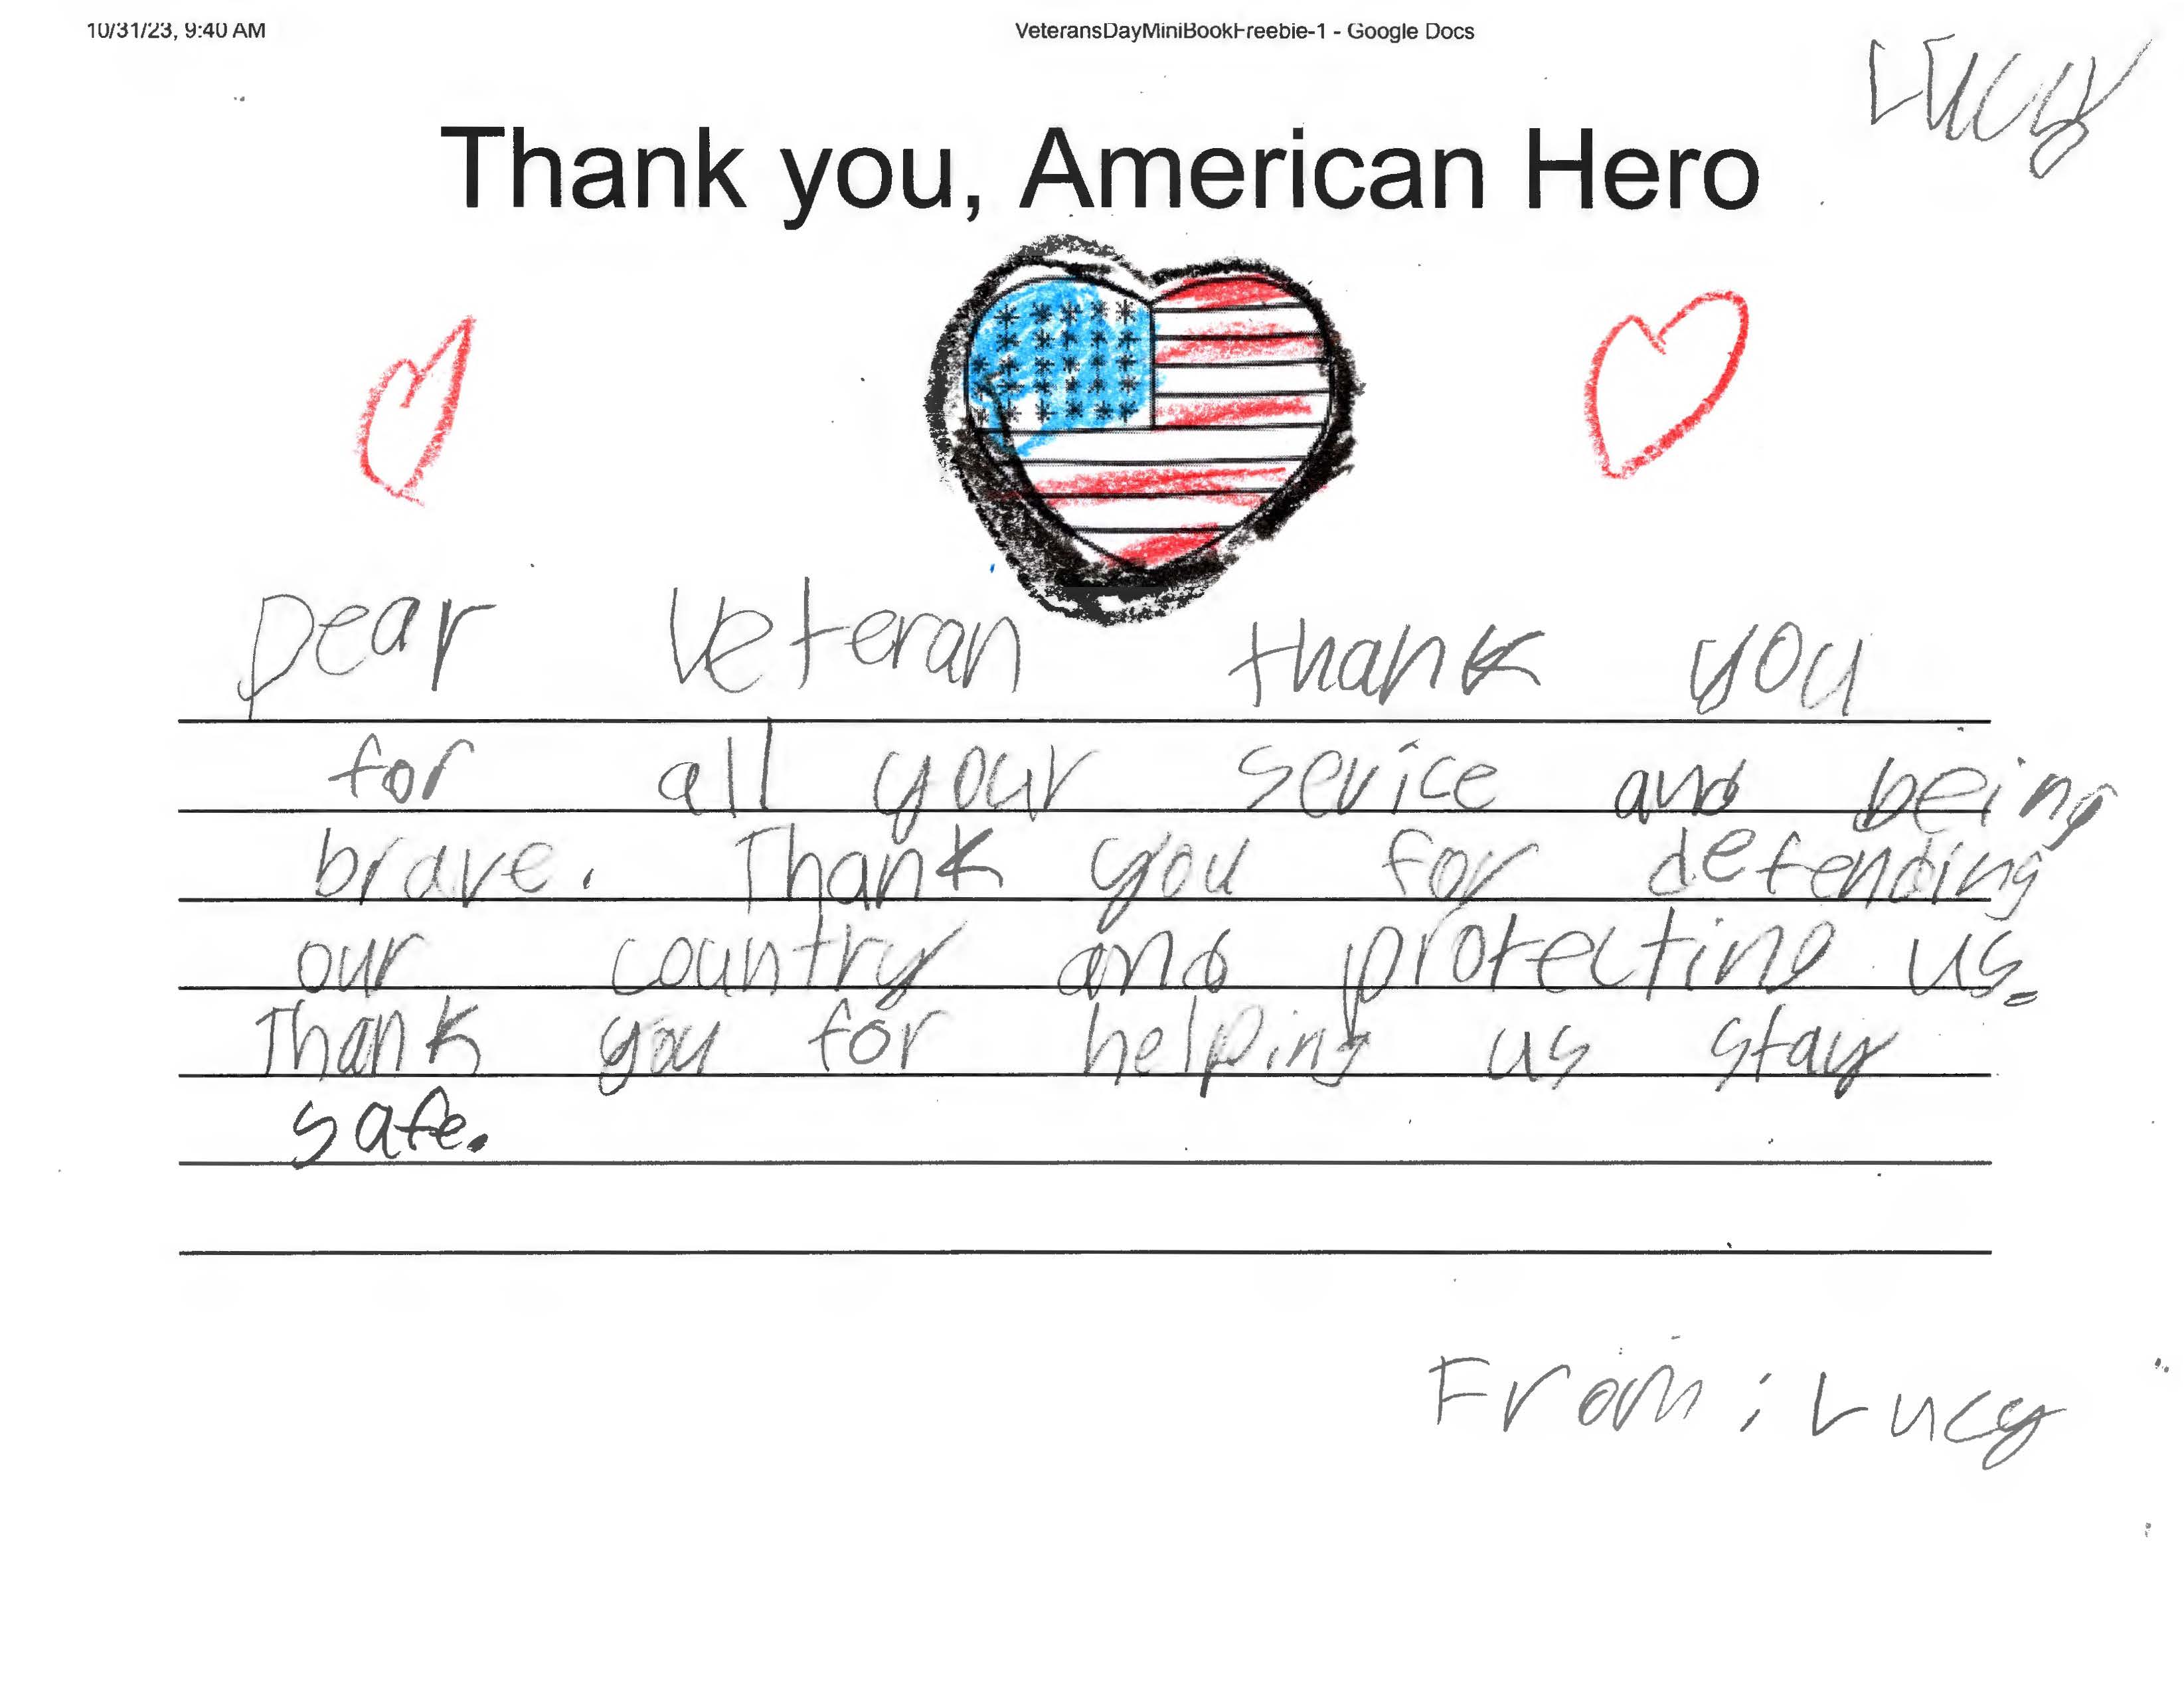 10/31/23, 9:40 AM VeteransDayMiniBookFreebie-1 - Google Docs
Lucy
Thank you, American Hero
Dear Veteran thank you
for all your sevice and being
brave. Thank you for defending
our country and protecting us.
Thank you for helping us stay
safe.
From: Lucy